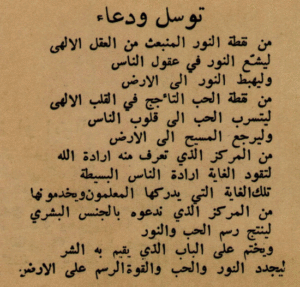 توسل ودعاء
من نقطة النور المنبعث من العقل الالهى
ليشع النور في عقول الناس
وليهبط النور الى الارض
من نقطة الحب التأجج في القلب الالهى
ليتسرب الحب الى قلوب الناس
وليرجع المسيح الى الارض
من المركز الذي تعرف منه ارادة الله
لتقود الغاية ارادة الناس البسيطة
تلك الغاية التي يدركها المعلمون ويخدمونها
من المركز الذي ندعوه بالجنس البشري
لينتج رسم الحب والنور
ويختم على الباب الذي يقيم به الشر
ليجدد النور والحب والقوة الرسم على الارض